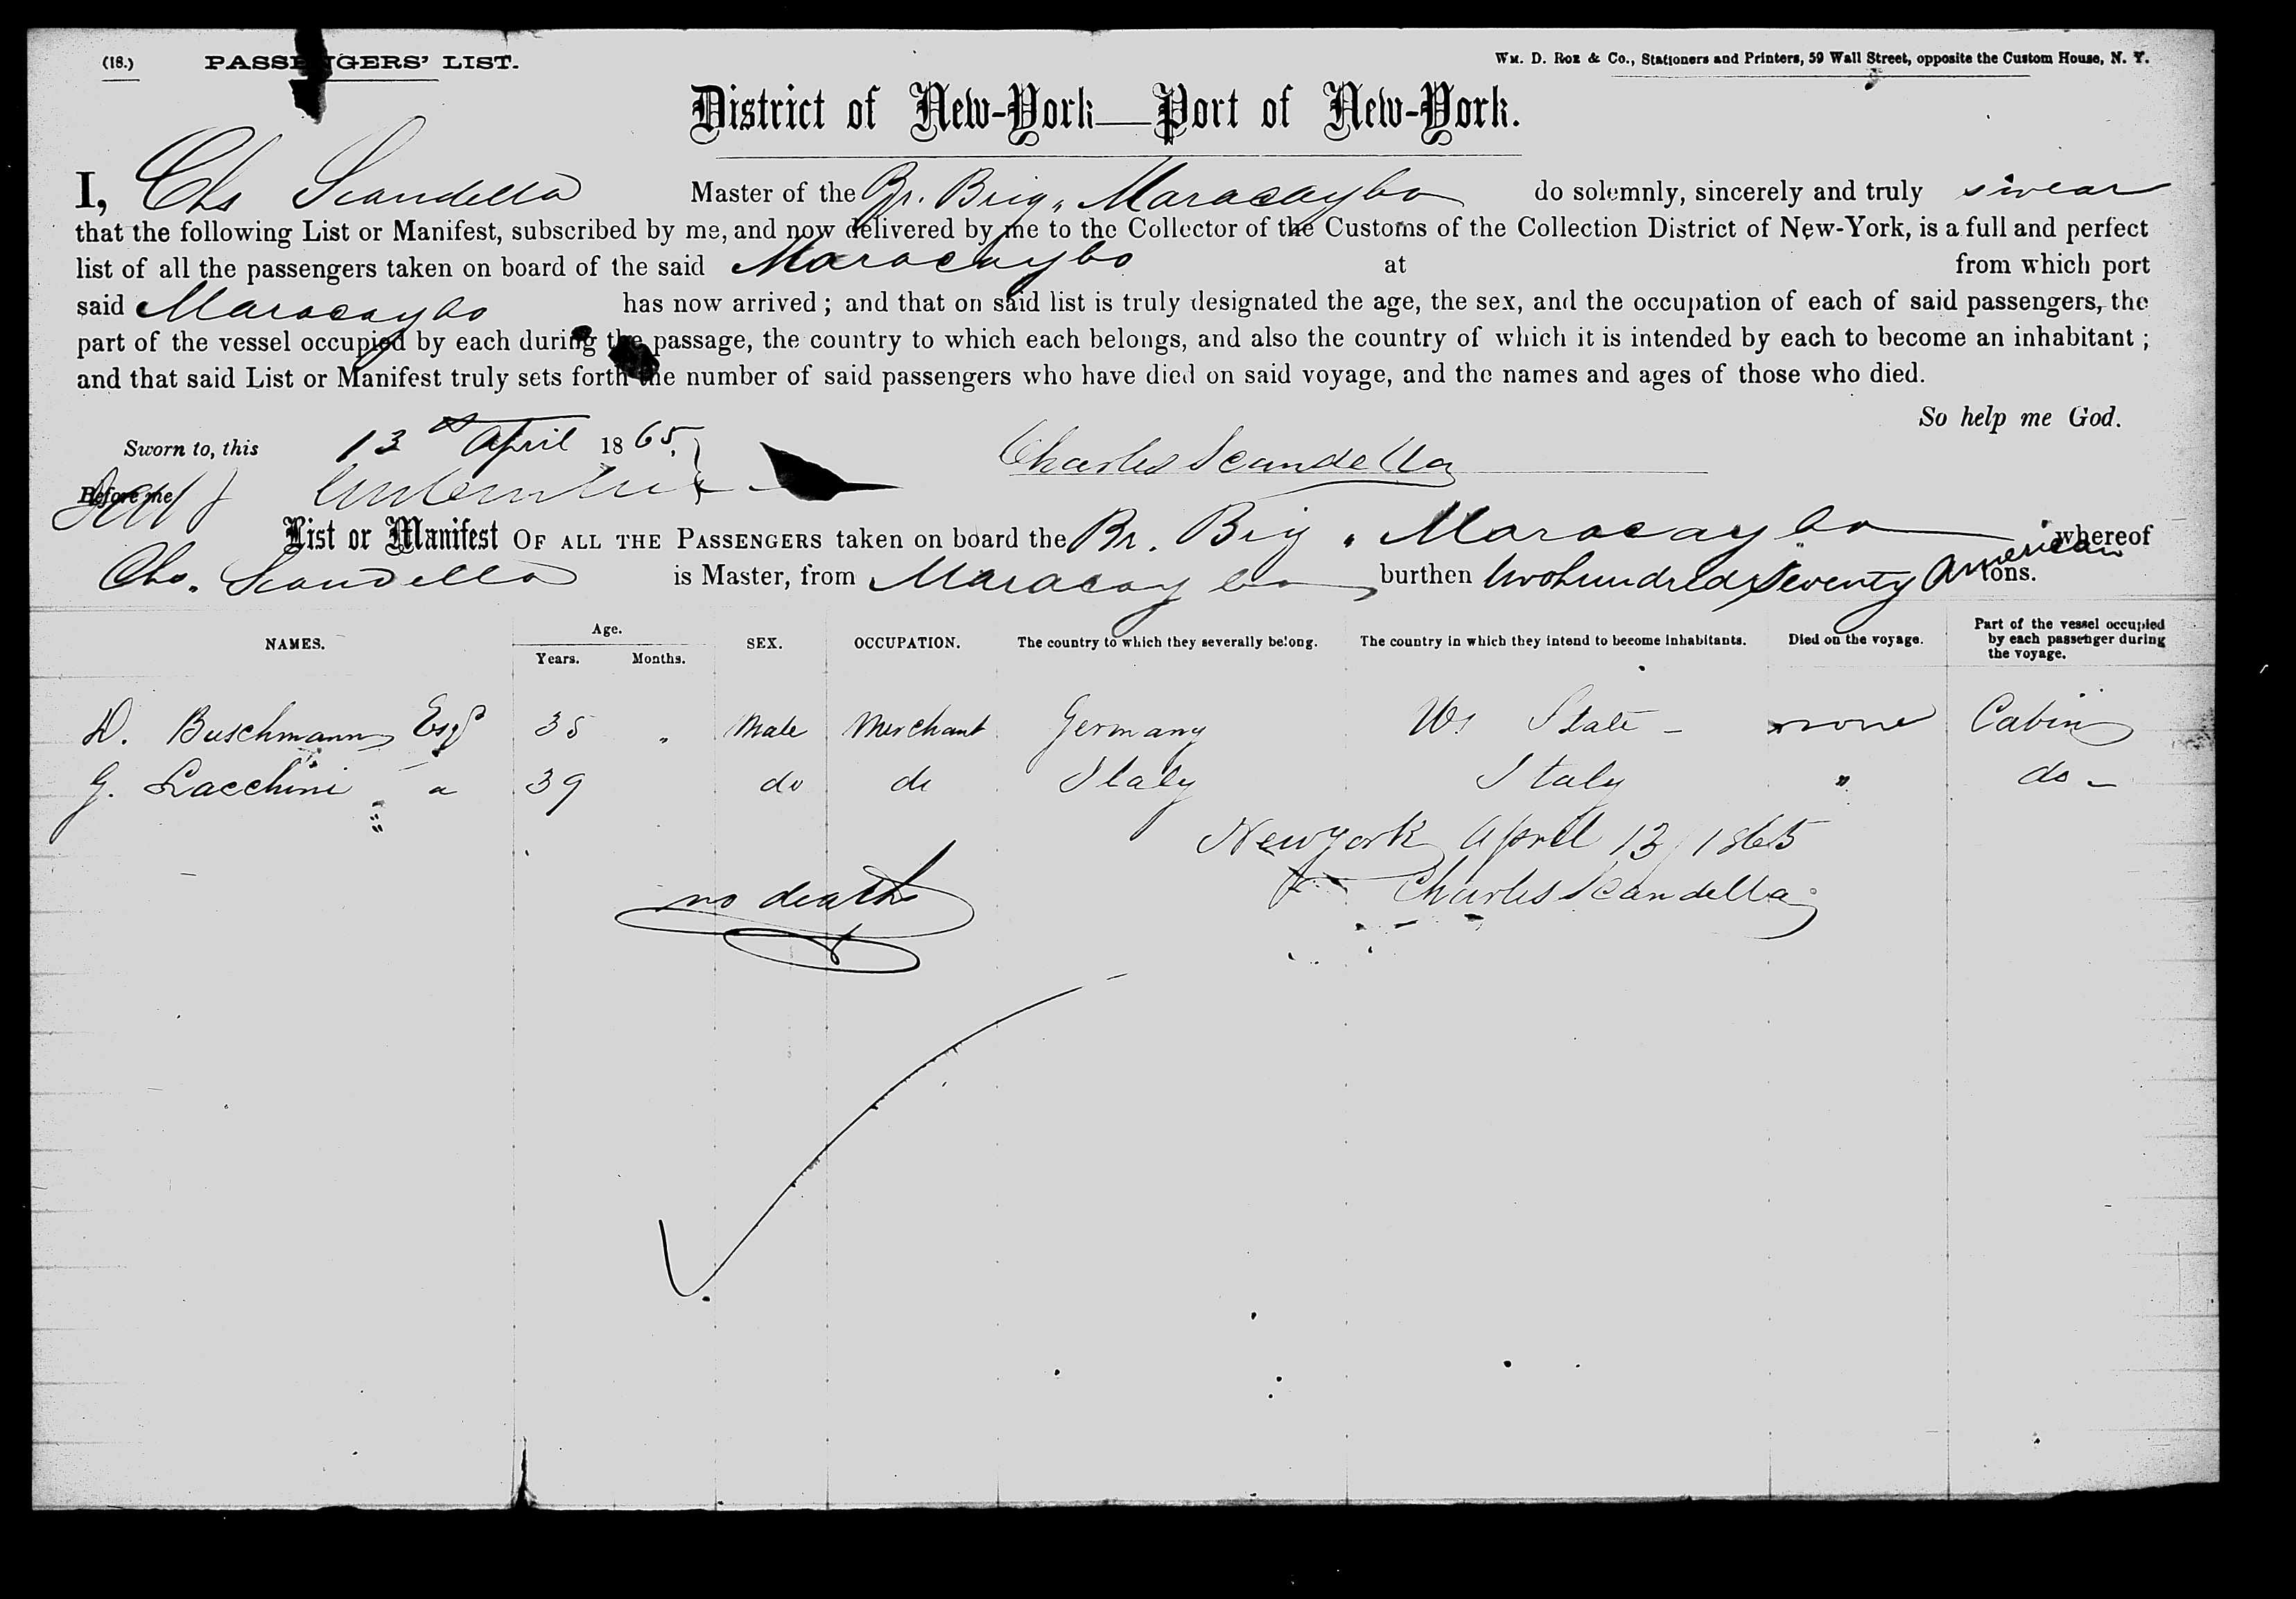 (18.) PASSENGERS' LIST. Wm. D. Roe & Co., Stationers and Printers, 59 Wall Street, opposite the Custom House, N. Y.
District of New-York—Port of New-York.
I, Chs Scandella Master of the Br. Brig " Maracaybo do solemnly, sincerely and truly swear
that the following List or Manifest, subscribed by me, and now delivered by me to the Collector of the Customs of the Collection District of New-York, is a full and perfect
list of all the passengers taken on board of the said Maracaybo at from which port
said Maracaybo has now arrived; and that on said list is truly designated the age, the sex, and the occupation of each of said passengers, the
part of the vessel occupied by each during the passage, the country to which each belongs, and also the country of which it is intended by each to become an inhabitant;
and that said List or Manifest truly sets forth the number of said passengers who have died on said voyage, and the names and ages of those who died.
So help me God.
Sworn to, this 13th April 1865.
Charles Scandella
Before me
List or Manifest OF ALL THE PASSENGERS taken on board the Br. Brig " Maracaybo whereof
Chs. Scandella is Master, from Maracaybo burthen two hundred seventy American tons.
NAMES. Age. Years. Months. SEX. OCCUPATION. The country to which they severally belong. The country in which they intend to become inhabitants. Died on the voyage. Part of the vessel occupied by each passenger during the voyage.
D. Buschmann Esqr 35 " Male Merchant Germany Us State - none Cabin
G. Lacchini 39 do do Italy Italy " do -
New york April 13 / 1865
no deaths
Charles Scandella